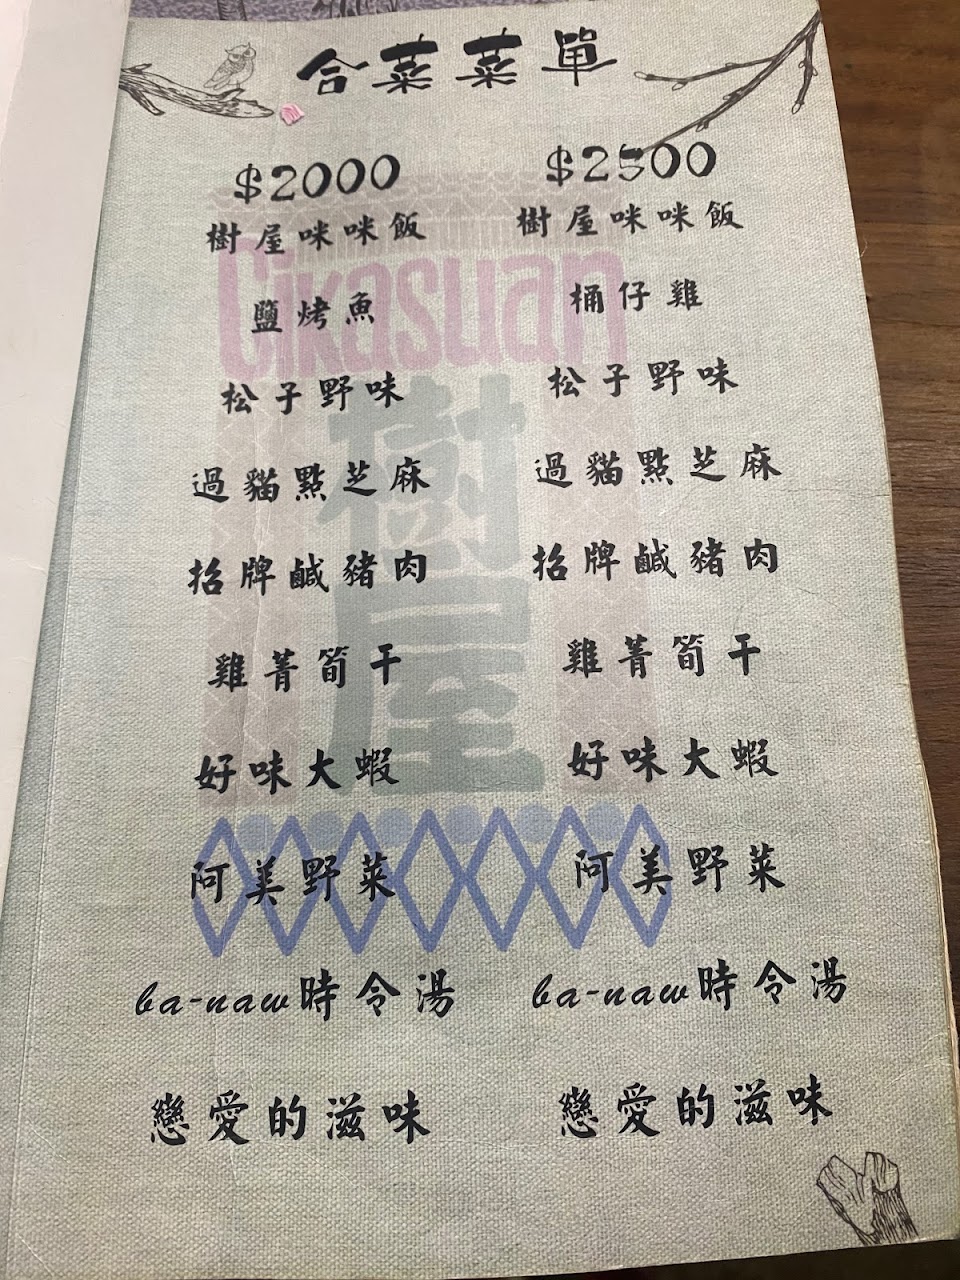 合菜菜單
$2000
樹屋咪咪飯
鹽烤魚
松子野味
過貓點芝麻
招牌鹹豬肉
雞菁筍干
好味大蝦
阿美野菜
ba-naw時令湯
戀愛的滋味
$2500
樹屋咪咪飯
桶仔雞
松子野味
過貓點芝麻
招牌鹹豬肉
雞菁筍干
好味大蝦
阿美野菜
ba-naw時令湯
戀愛的滋味
Cikasuan
樹屋